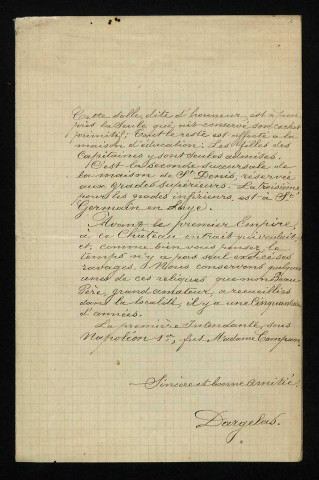 Cette salle, dite d'honneur, est à peu
près la seule qui ait conservé son cachet
primitif; tout le reste est affecté à la
maison d'éducation. Les filles des
Capitaines y sont seules admises.
C'est la seconde succursale de
la maison de St Denis, réservée
aux grades supérieurs. La troisième
pour les grades inférieurs, est à St
Germain en Laye.
Avant le premier Empire,
à ce Château
et, comme bien vous pensez, le
temps n'y a pas seul exercé ses
ravages. Nous conservons quelques
unes de ces reliques que mon Beau
Père, grand amateur, a recueillies
dans la localité, il y a une cinquantaine
d'années.
La première Intendante, sous
Napoléon 1er, fut Madame Campan.
Sincère et bonne amitié.
Dargelas.